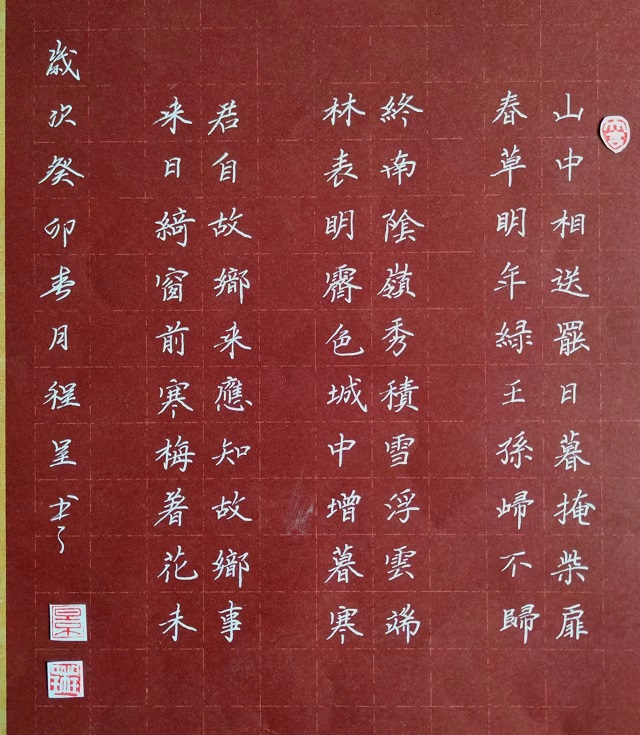 山中相送罷日暮掩柴扉
春草明年緑王孫歸不歸
終南陰嶺秀積雪浮雲端
林表明霽色城中增暮寒
君自故鄉来應知故鄉事
来日綺窗前寒梅著花未
歲次癸卯春月程呈书